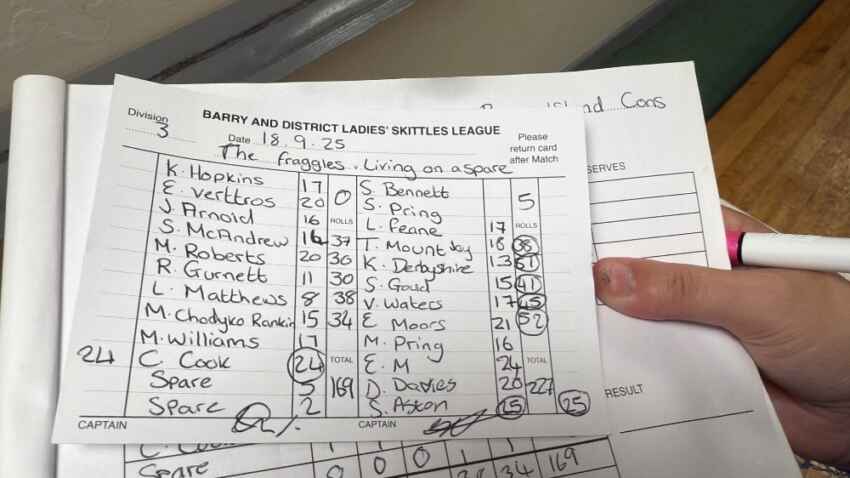 Island Cons
BARRY AND DISTRICT LADIES' SKITTLES LEAGUE
Division 3
Date 18.9.25
Please return card after Match
The fraggles . Living on a spare
K. Hopkins 17 0 S. Bennett 5
E. Verttros 20 S. Pring
J. Arnold 16 ROLLS L. Feane 17 ROLLS
S. McAndrew 16 37 T. Mountjoy 18 38
M. Roberts 20 30 K. Derbyshire 13 51
R. Gurnett 11 30 S. Goud 15 41
L. Matthews 8 38 V. Waters 17 45
M. Chodyko Rankin 15 34 E Moors 21 52
M. Williams 17 M. Pring 16
24 C. Cook 24 TOTAL E. M 24 TOTAL
Spare 5 169 D. Davies 20 227
Spare 2 S. Aston 25 25
CAPTAIN CAPTAIN
SERVES
RESULT
C. Cook 1 1 1 1
Spare 0 0 0 34 169